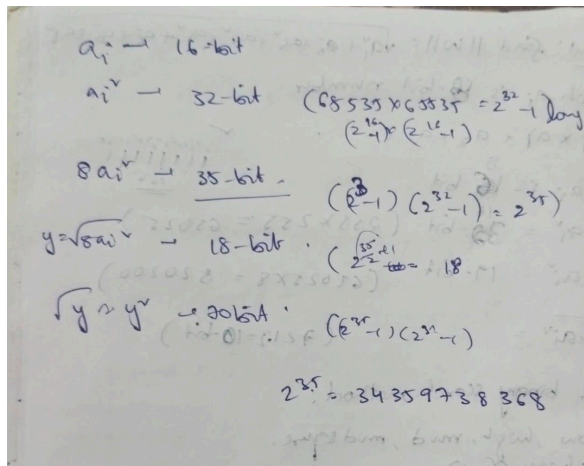 ai → 16-bit
ai² → 32-bit (68535×65535 = 2³²-1) long
(2¹⁶-1)×(2¹⁶-1)
8ai² → 35-bit. (2³-1) (2³²-1) = 2³⁵)
y=√8ai² → 18-bit.
= 18
√y ≈ y² → 70bit. ((2³⁵-1)(2³⁵-1)
2³⁵ = 34359738368